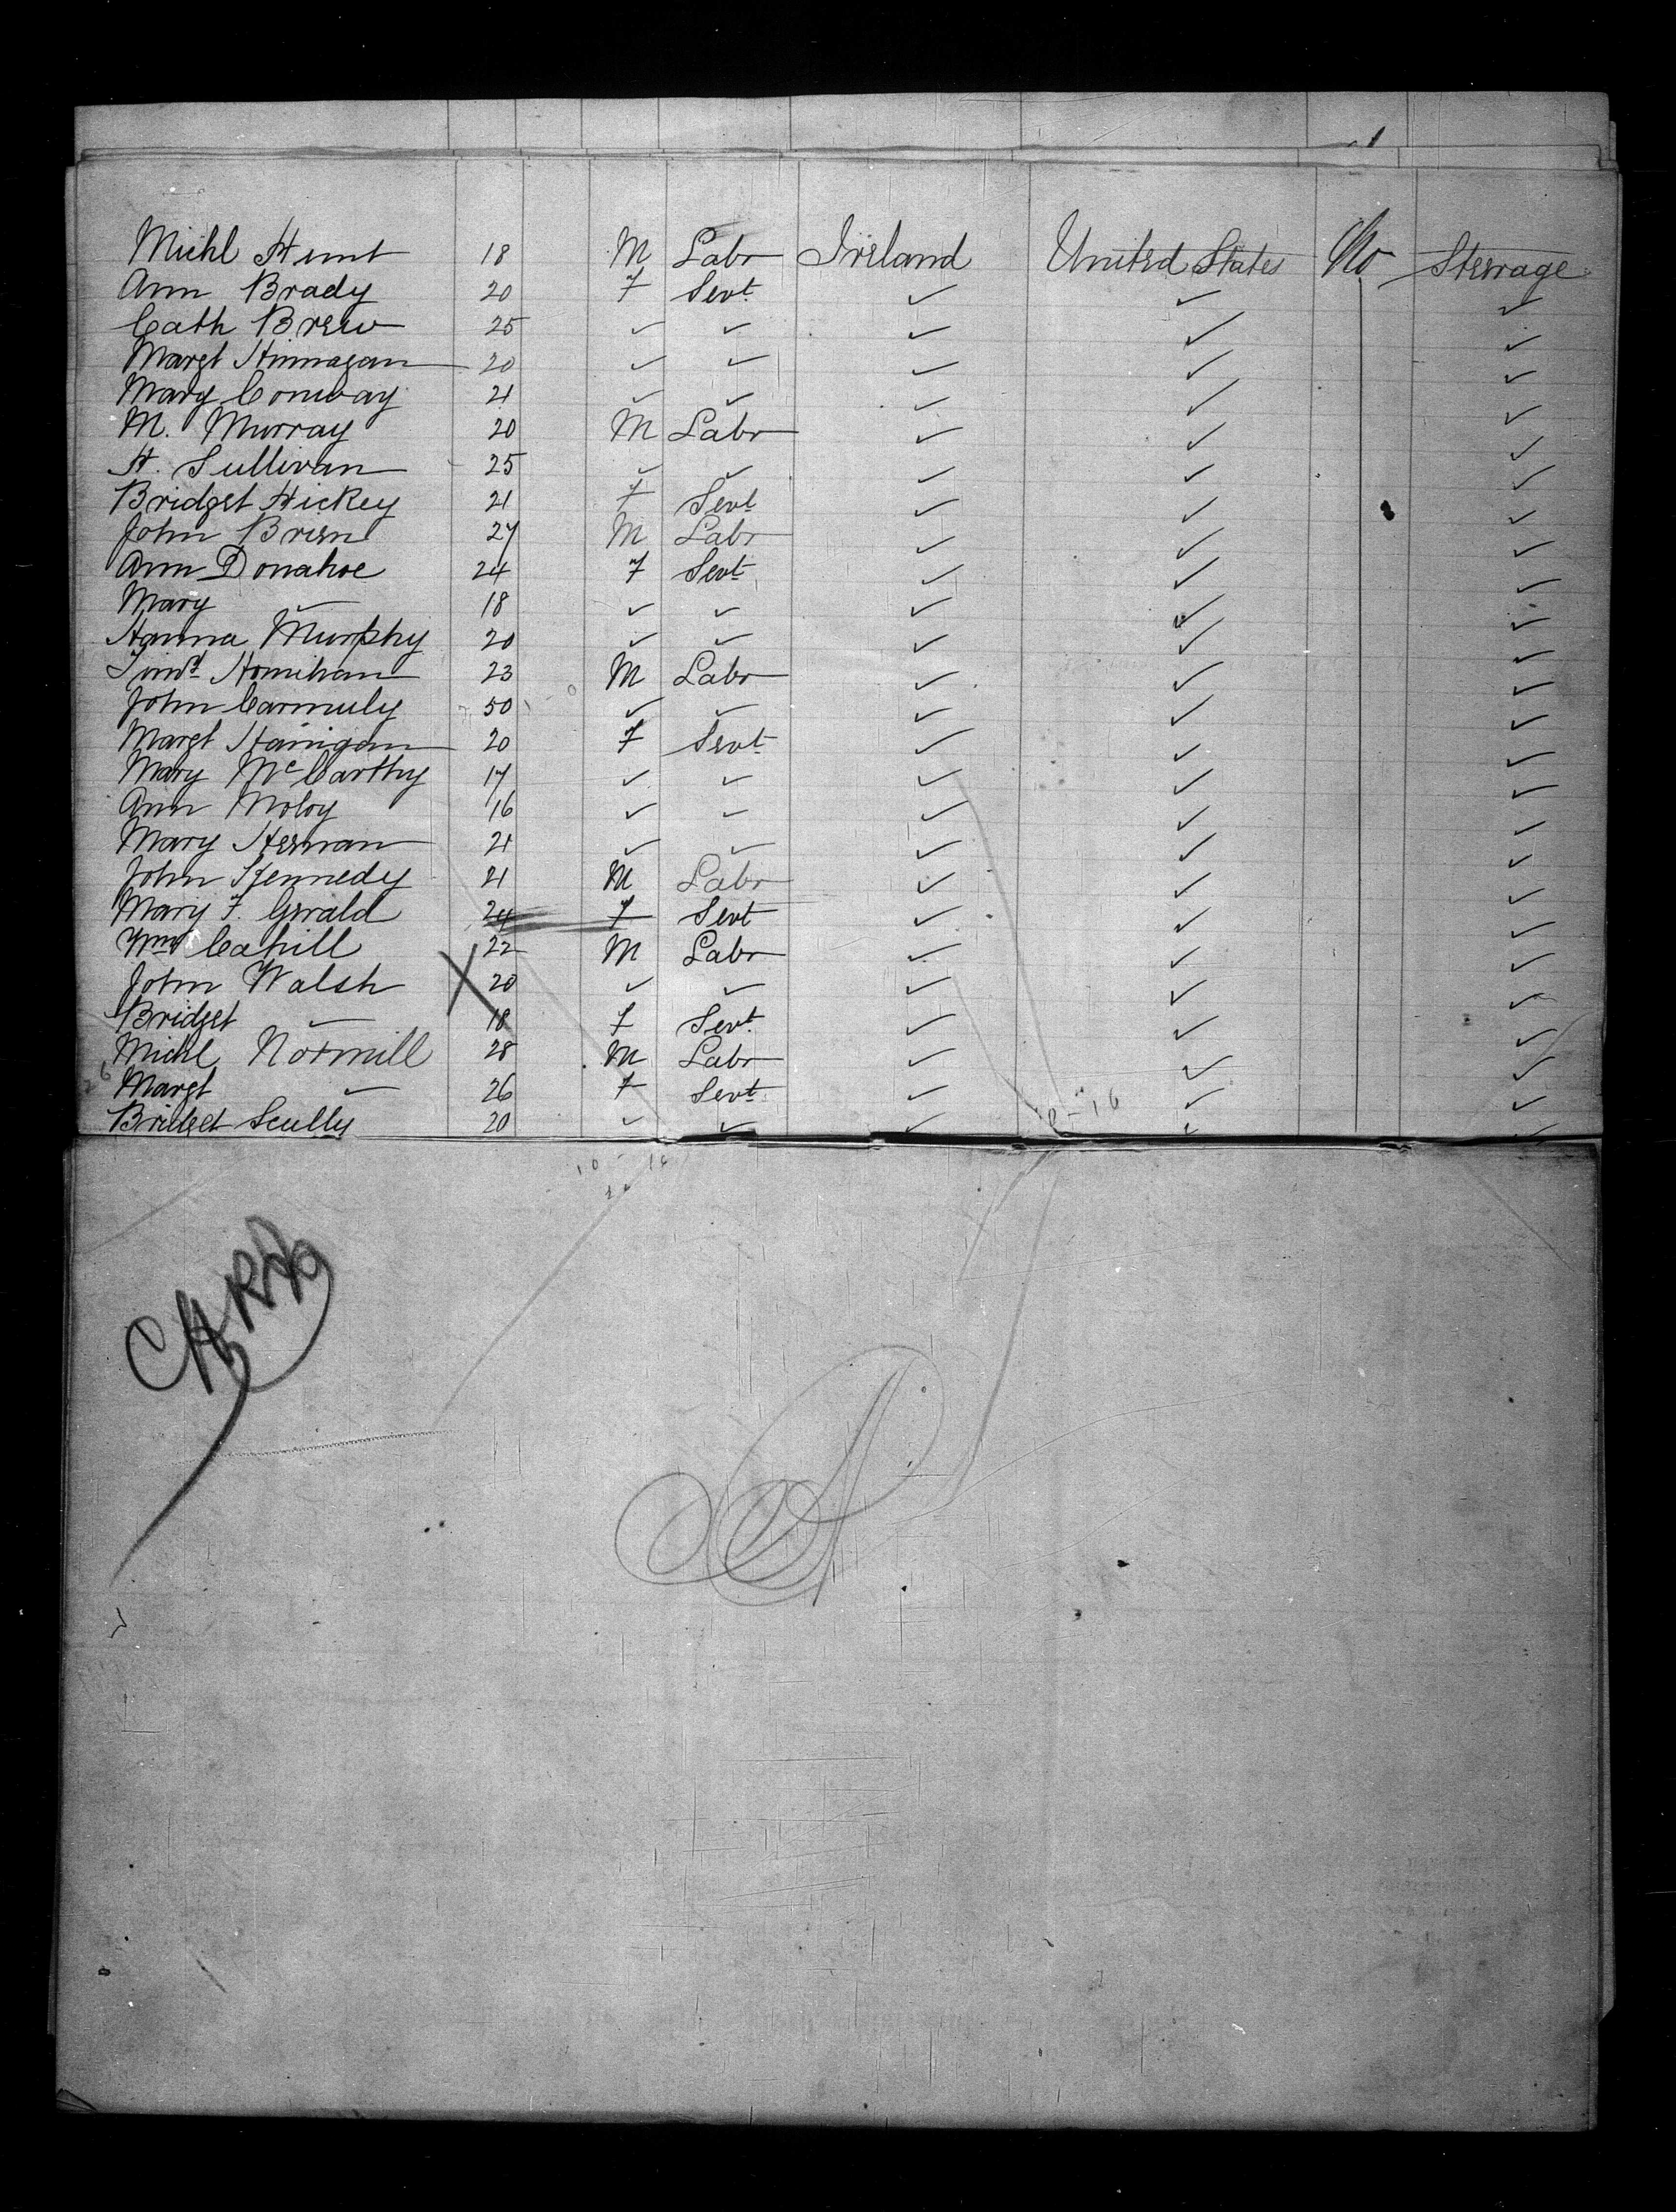 Michl Hunt 18 M Labr Ireland United States No Steerage
Ann Brady 20 F Servt ✓ ✓ ✓
Cath Brew 25 ✓ ✓ ✓ ✓ ✓
Margt Hinnagan 20 ✓ ✓ ✓ ✓ ✓
Mary Conway 21 ✓ ✓ ✓ ✓ ✓
M. Murray 20 M Labr ✓ ✓ ✓
H. Sullivan 25 ✓ ✓ ✓ ✓ ✓
Bridget Hickey 21 F Servt ✓ ✓ ✓
John Brien 27 M Labr ✓ ✓ ✓
Ann Donahoe 24 F Servt ✓ ✓ ✓
Mary ✓ 18 ✓ ✓ ✓ ✓ ✓
Hanna Murphy 20 ✓ ✓ ✓ ✓ ✓
Timt Honihan 23 M Labr ✓ ✓ ✓
John Carmuly 50 ✓ ✓ ✓ ✓ ✓
Margt Hanigan 20 F Servt ✓ ✓ ✓
Mary McCarthy 17 ✓ ✓ ✓ ✓ ✓
Ann Moloy 16 ✓ ✓ ✓ ✓ ✓
Mary Hernan 21 ✓ ✓ ✓ ✓ ✓
John Kennedy 21 M Labr ✓ ✓ ✓
Mary F. Gerald 24 F Servt ✓ ✓ ✓
Wm Cahill 22 M Labr ✓ ✓ ✓
John Walsh X 20 ✓ ✓ ✓ ✓ ✓
Bridget ✓ 18 F Servt ✓ ✓ ✓
Michl Normill 28 M Labr ✓ ✓ ✓
Margt ✓ 26 F Servt ✓ ✓ ✓
Bridget Scully 20 ✓ ✓ ✓ ✓ ✓